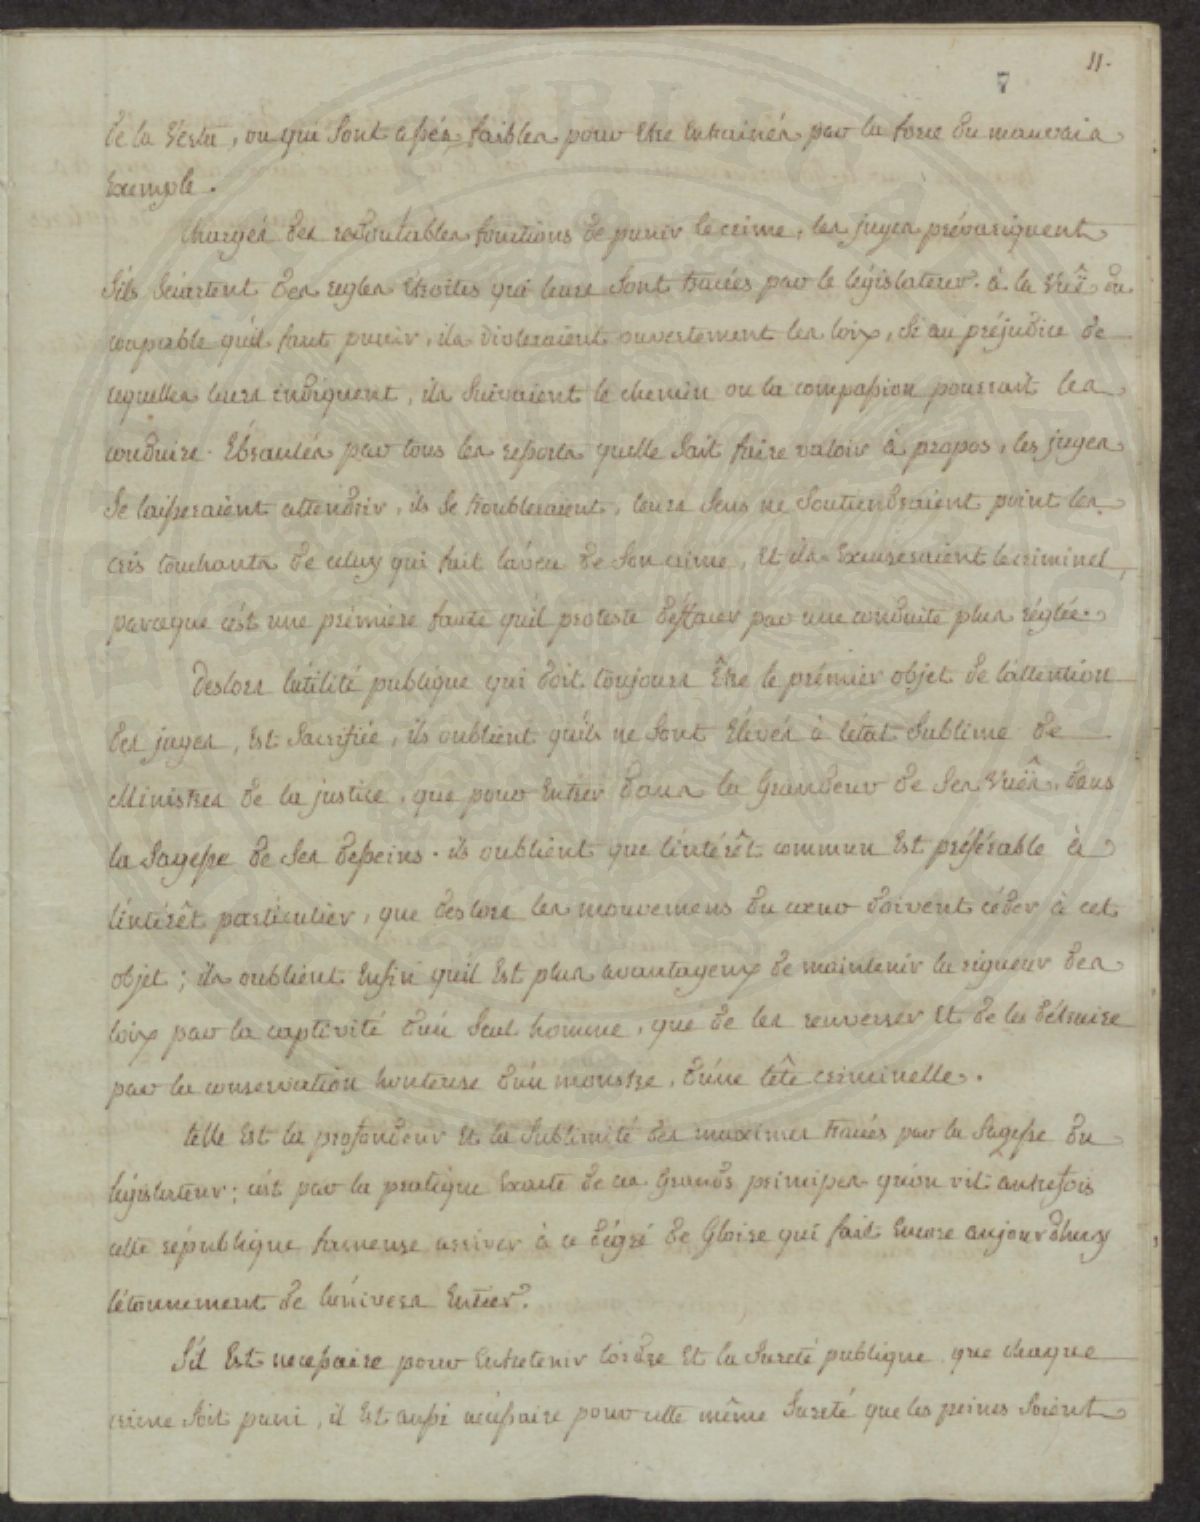 11.
7
de la Vertu, ou qui sont assés faibles pour Etre Entrainés par la force du mauvais
Exemple.
Chargés des redoutables fonctions de punir le crime, les juges prévariquent
s'ils sécartent des regles étroites qui leurs sont tracées par le législateur. à la Vuë du
coupable qu'il faut punir, ils violeraient ouvertement les loix, si au préjudice de
cequelles leurs indiquent, ils suivaient le chemin ou la compassion pourrait les
conduire. Ebranlés par tous les ressorts quelle sait faire valoir à propos, les juges
se laisseraient attendrir, ils se troubleraient, leurs sens ne soutiendraient point les
cris touchants de celuy qui fait l'aveu de son crime, Et ils Excuseraient le criminel,
parceque c'est une prémiere faute qu'il proteste d'éffacer par une conduite plus réglée.
Deslors lutilité publique qui doit toujours Être le prémier objet de l'attention
des juges, Est sacrifiée, ils oublient quils ne sont Élevés à létat sublime de
Ministres de la justice, que pour Entrer dans la Grandeur de ses Vuës, dans
la sagesse de ses desseins. ils oublient que l'intérêt commun Est préférable à
l'intérêt particulier, que deslors les mouvemens du cœur doivent céder à cet
objet; ils oublient Enfin quil Est plus avantageux de maintenir la rigueur des
loix par la captivité d'un seul homme, que de les renverser Et de les détruire
par la conservation honteuse d'un monstre, d'une tête criminelle.
telle Est la profondeur Et la sublimité des maximes tracées par la sagesse du
législateur; c'est par la pratique Exacte de ces Grands principes qu'on vit autrefois
cette république fameuse arriver à ce dégré de Gloire qui fait Encore aujourdhuy
létonnement de l'univers Entier.
S'il Est necessaire pour Entretenir lordre Et la sureté publique que chaque
crime soit puni, il Est aussi nécessaire pour cette même sureté que les peines soient